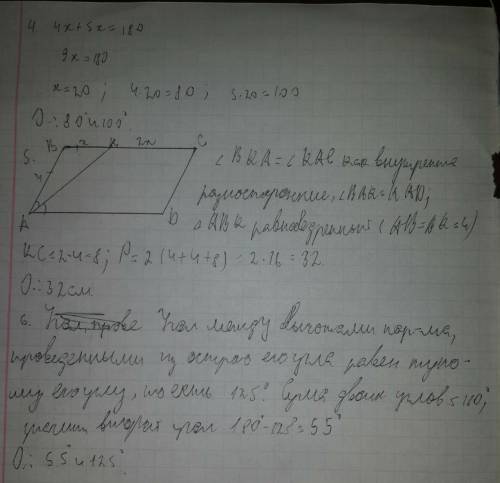 4. 4x+5x=180
9x=180
x=20 ; 4·20=80 ; 5·20=100
О.: 80 и 100°.
B x K 2x C
5.
4
A D
∠BKA=∠KAD как внутренне
разносторонние, ∠BAK=KAD,
△ABK равнобедренный (AB=BK=4)
KC=2·4=8; P=2(4+4+8)=2·16=32
О.: 32 см.
6. Угол между высотами пар-ма,
проведенными из острого его угла равен тупо-
му его углу, то есть 125°. Сумма двоих углов=180°,
значит второй угол 180°-125°=55°
О.: 55° и 125°.